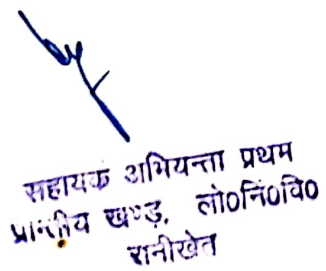 सहायक अभियन्ता प्रथम
प्रान्तीय खण्ड, लो०नि०वि०
रानीखेत